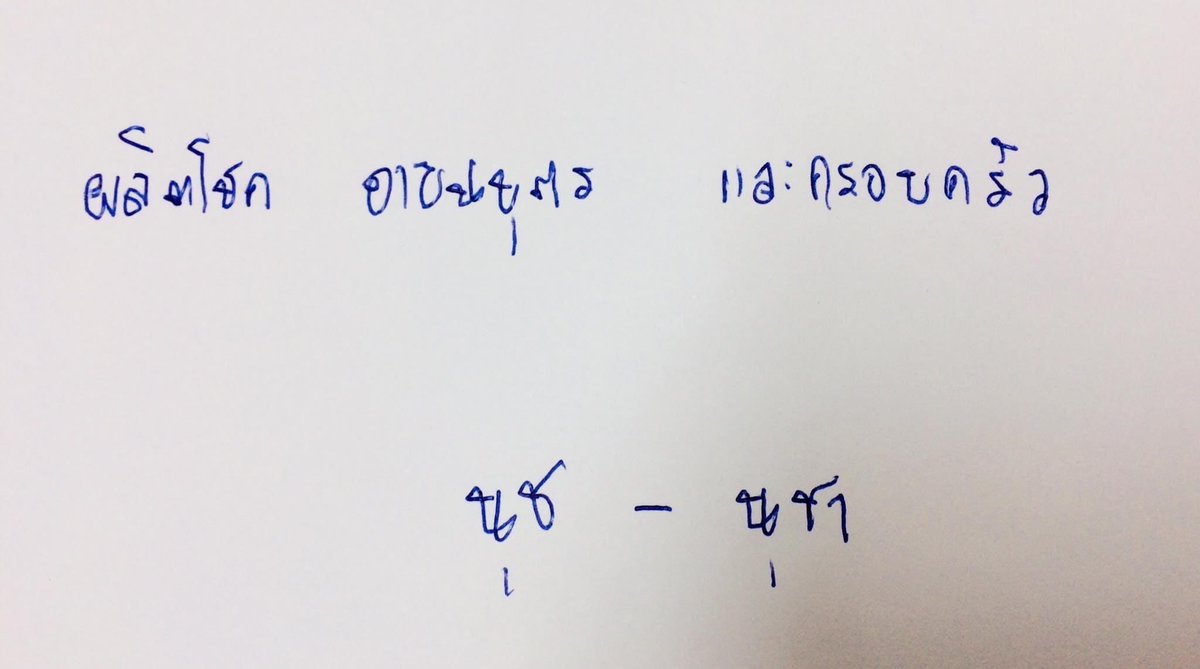 ผลิตโชค อายนบุตร และครอบครัว
นุช - นุชา